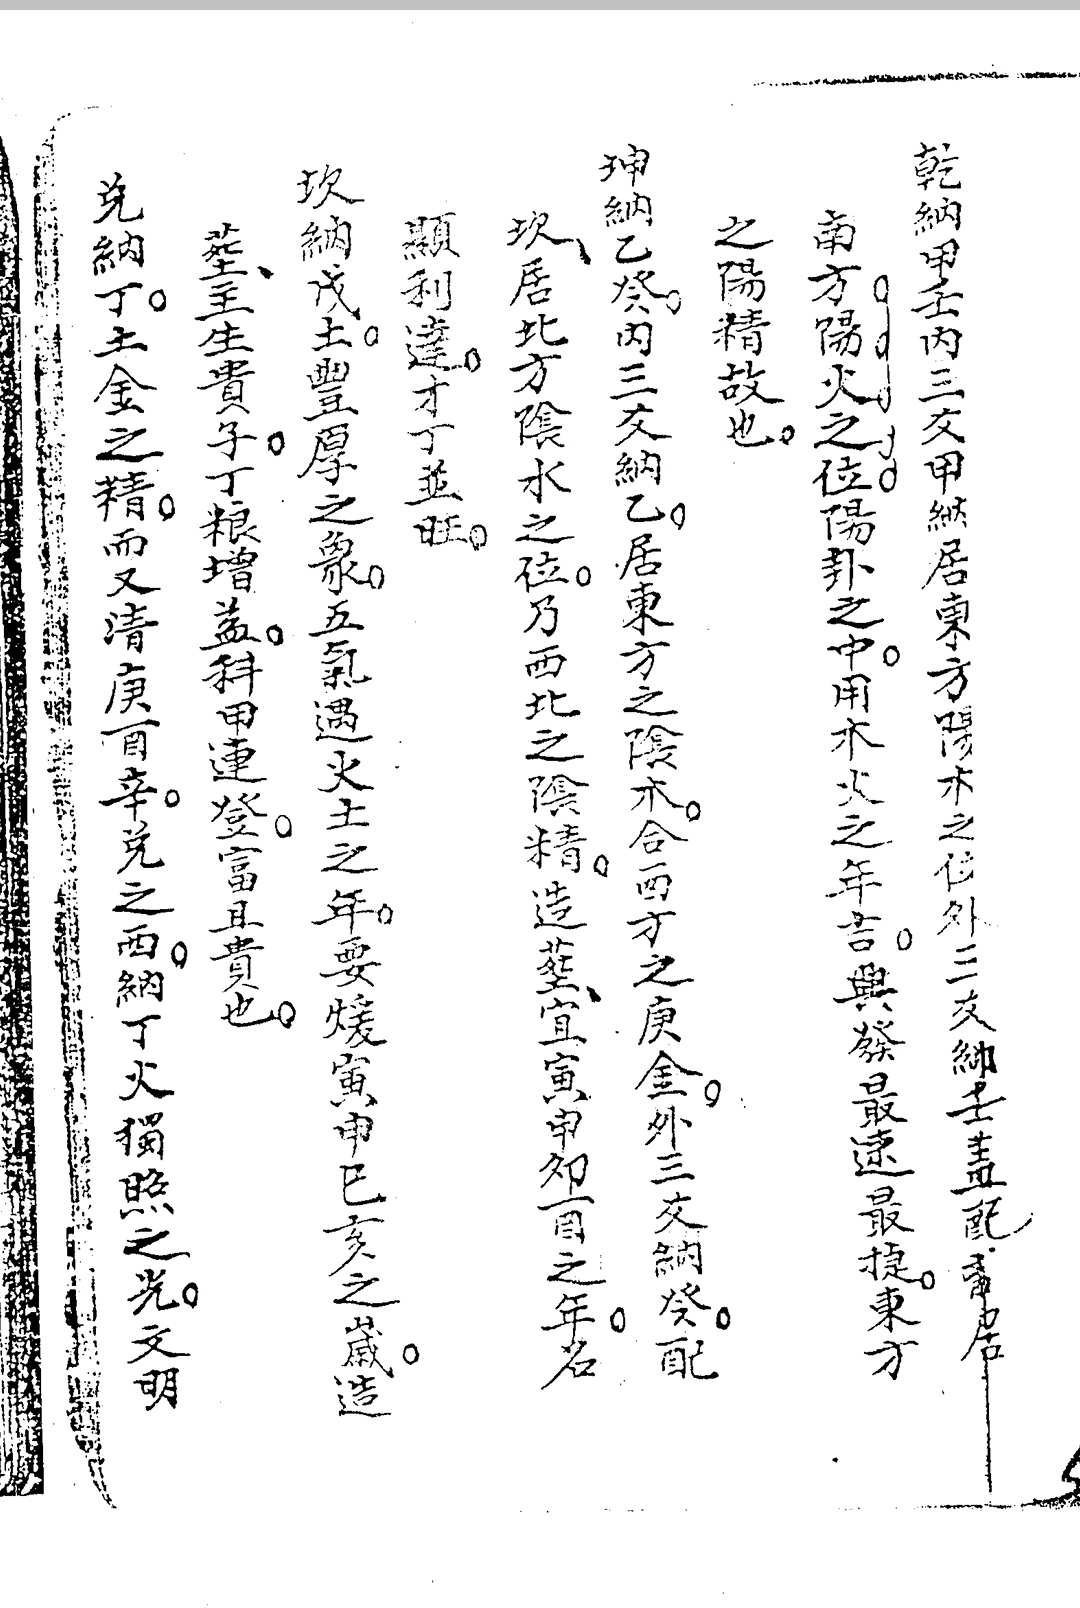 乾納甲壬内三爻甲納居東方陽木之位外三爻納壬盖配离居
南方陽火之位陽卦之中。用木火之年吉。興發最速最捷。東方
之陽精故也。
坤納乙癸。内三爻納乙。居東方之陰木。合西方之庚金。外三爻納癸。配
坎、居北方陰水之位。乃西北之陰精。造葬、宜寅申卯酉之年。名
顯利達。才丁並旺。
坎納戊土。豐厚之象。五氣遇火土之年。要煖寅申巳亥之歲。造
葬、主生貴子。丁粮增益。科甲連登。富且貴也。
兑納丁。土金之精。而又清庚酉辛。兑之西。納丁火獨照之光。文明